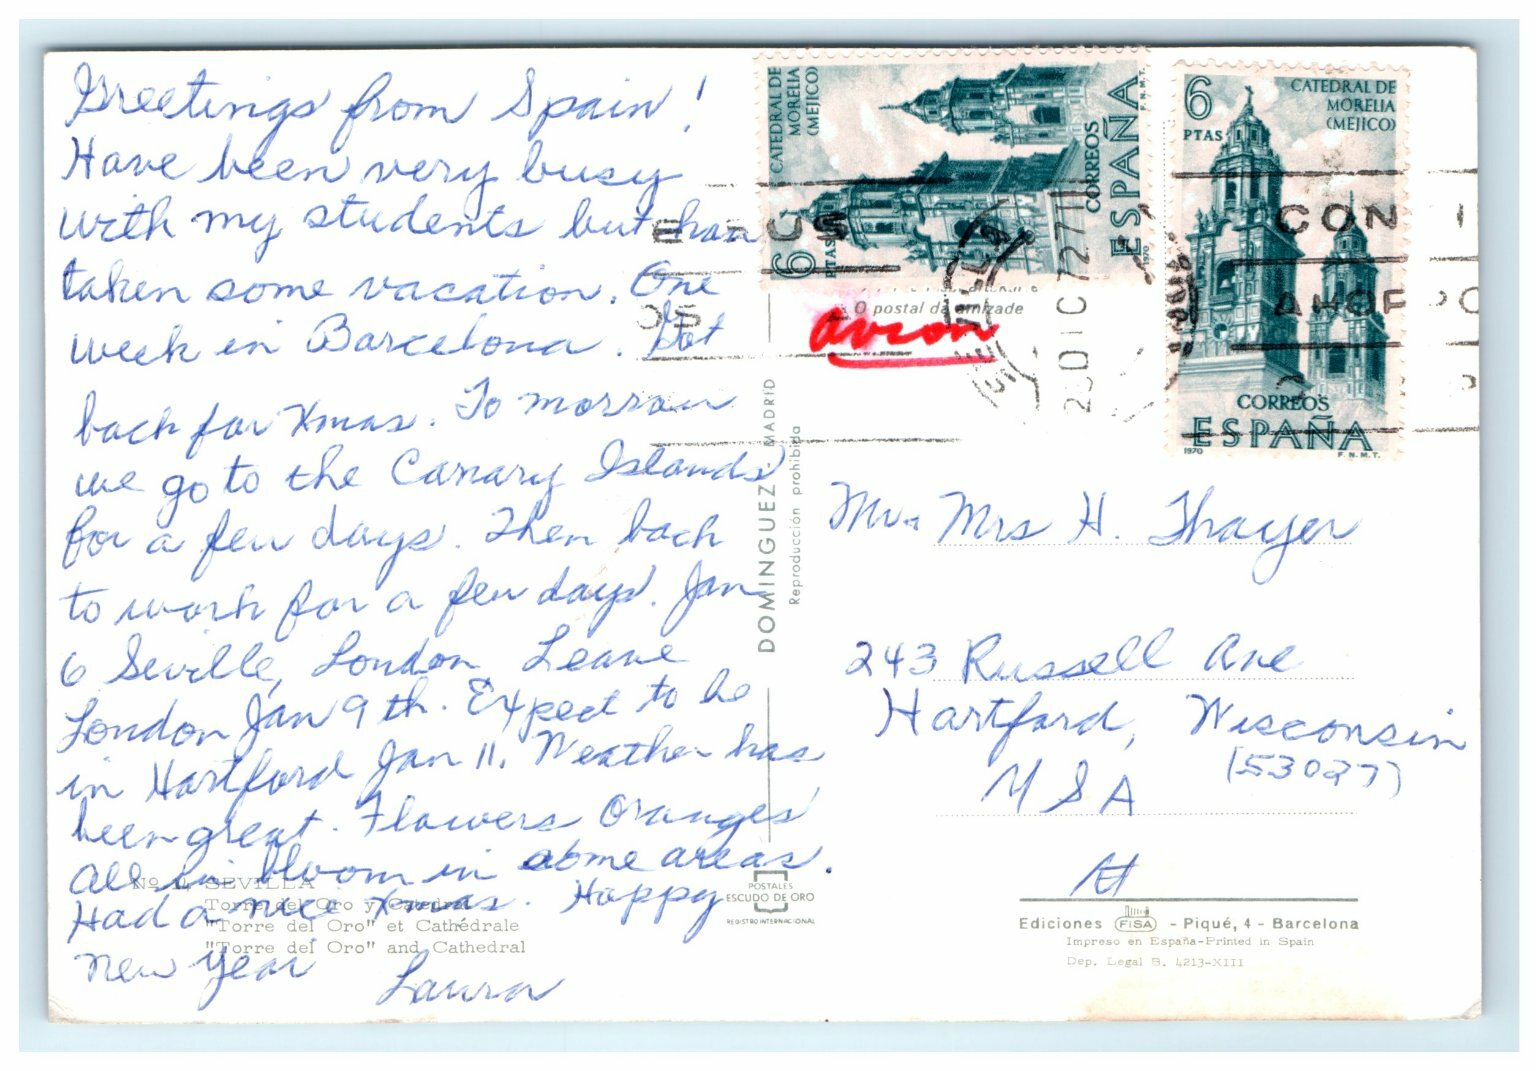 Greetings from Spain!
Have been very busy
with my students but have
taken some vacation. One
week in Barcelona. Got
back for Xmas. Tomorrow
we go to the Canary Islands
for a few days. Then back
to work for a few days. Jan
6 Seville, London Leave
London Jan 9th. Expect to be
in Hartford Jan 11. Weather has
been great. Flowers Oranges
all in bloom in some areas.
Had a nice Xmas. Happy
New Year
Laura
Nº 14 SEVILLA
Torre del Oro y Catedral
"Torre del Oro" et Cathédrale
"Torre del Oro" and Cathedral
CATEDRAL DE
MORELIA
(MEJICO)
6
PTAS
CORREOS
ESPAÑA
1970
F. N. M. T.
6
PTAS
CATEDRAL DE
MORELIA
(MEJICO)
CORREOS
ESPAÑA
1970
F. N. M. T.
SEVILLA
DIC 72
CON
O postal da amizade
avion
DOMINGUEZ - MADRID
Reproducción prohibida
Mr. Mrs H. Thayer
243 Russell Ave
Hartford, Wisconsin
(53027)
USA
POSTALES
ESCUDO DE ORO
REGISTRO INTERNACIONAL
Ediciones FISA - Piqué, 4 - Barcelona
Impreso en España-Printed in Spain
Dep. Legal B. 4213-XIII